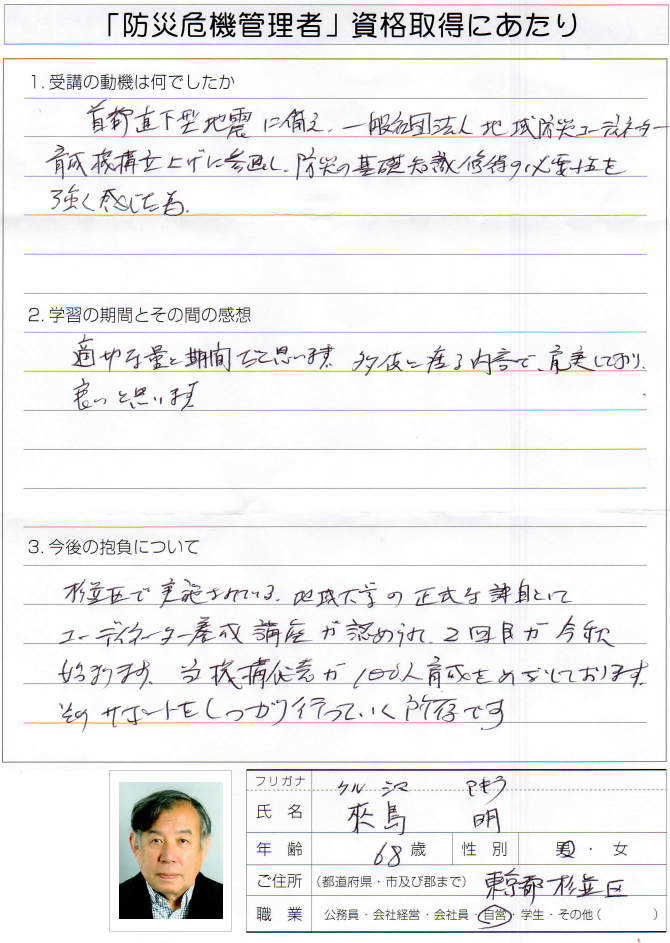 「防災危機管理者」資格取得にあたり
1. 受講の動機は何でしたか
首都直下型地震に備え、一般社団法人地域防災コーディネーター
育成機構立上げに参画し、防災の基礎知識修得の必要性を
強く感じた為。
2. 学習の期間とその間の感想
適切な量と期間だと思います。多岐に渡る内容で、充実しており、
良いと思います
3. 今後の抱負について
杉並区で実施されている、地域大学の正式な課目として
コーディネーター養成講座が認められ、2回目が今秋
始まります。当機構代表が100人育成をめざしております。
そのサポートをしっかり行っていく所存です
フリガナ
氏 名 來島 明
年 齢 68 歳 性 別 男 ・ 女
ご住所 (都道府県・市及び郡まで) 東京都杉並区
職 業 公務員・会社経営・会社員・自営・学生・その他 ( )